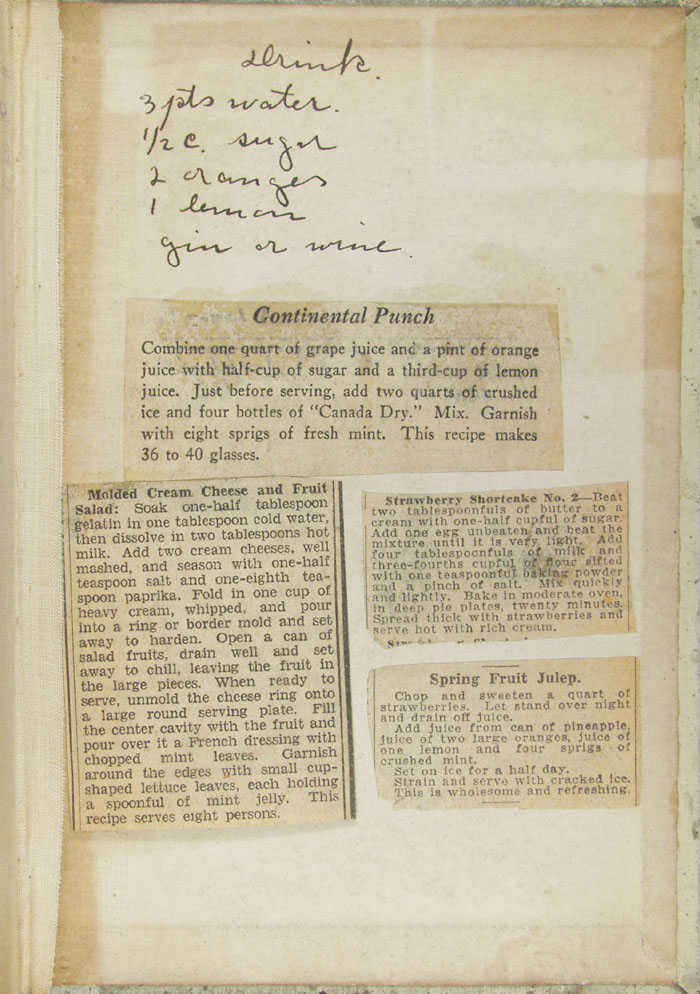 Drink.
3 pts water.
1/2 c. sugar
2 oranges
1 lemon
gin or wine.
Continental Punch
Combine one quart of grape juice and a pint of orange
juice with half-cup of sugar and a third-cup of lemon
juice. Just before serving, add two quarts of crushed
ice and four bottles of "Canada Dry." Mix. Garnish
with eight sprigs of fresh mint. This recipe makes
36 to 40 glasses.
Molded Cream Cheese and Fruit
Salad: Soak one-half tablespoon
gelatin in one tablespoon cold water,
then dissolve in two tablespoons hot
milk. Add two cream cheeses, well
mashed, and season with one-half
teaspoon salt and one-eighth tea-
spoon paprika. Fold in one cup of
heavy cream, whipped, and pour
into a ring or border mold and set
away to harden. Open a can of
salad fruits, drain well and set
away to chill, leaving the fruit in
the large pieces. When ready to
serve, unmold the cheese ring onto
a large round serving plate. Fill
the center cavity with the fruit and
pour over it a French dressing with
chopped mint leaves. Garnish
around the edges with small cup-
shaped lettuce leaves, each holding
a spoonful of mint jelly. This
recipe serves eight persons.
Strawberry Shortcake No. 2—Beat
two tablespoonfuls of butter to a
cream with one-half cupful of sugar.
Add one egg unbeaten and beat the
mixture until it is very light. Add
four tablespoonfuls of milk and
three-fourths cupful of flour sifted
with one teaspoonful baking powder
and a pinch of salt. Mix quickly
and lightly. Bake in moderate oven,
in deep pie plates, twenty minutes.
Spread thick with strawberries and
serve hot with rich cream.
Spring Fruit Julep.
Chop and sweeten a quart of
strawberries. Let stand over night
and drain off juice.
Add juice from can of pineapple,
juice of two large oranges, juice of
one lemon and four sprigs of
crushed mint.
Set on ice for a half day.
Strain and serve with cracked ice.
This is wholesome and refreshing.